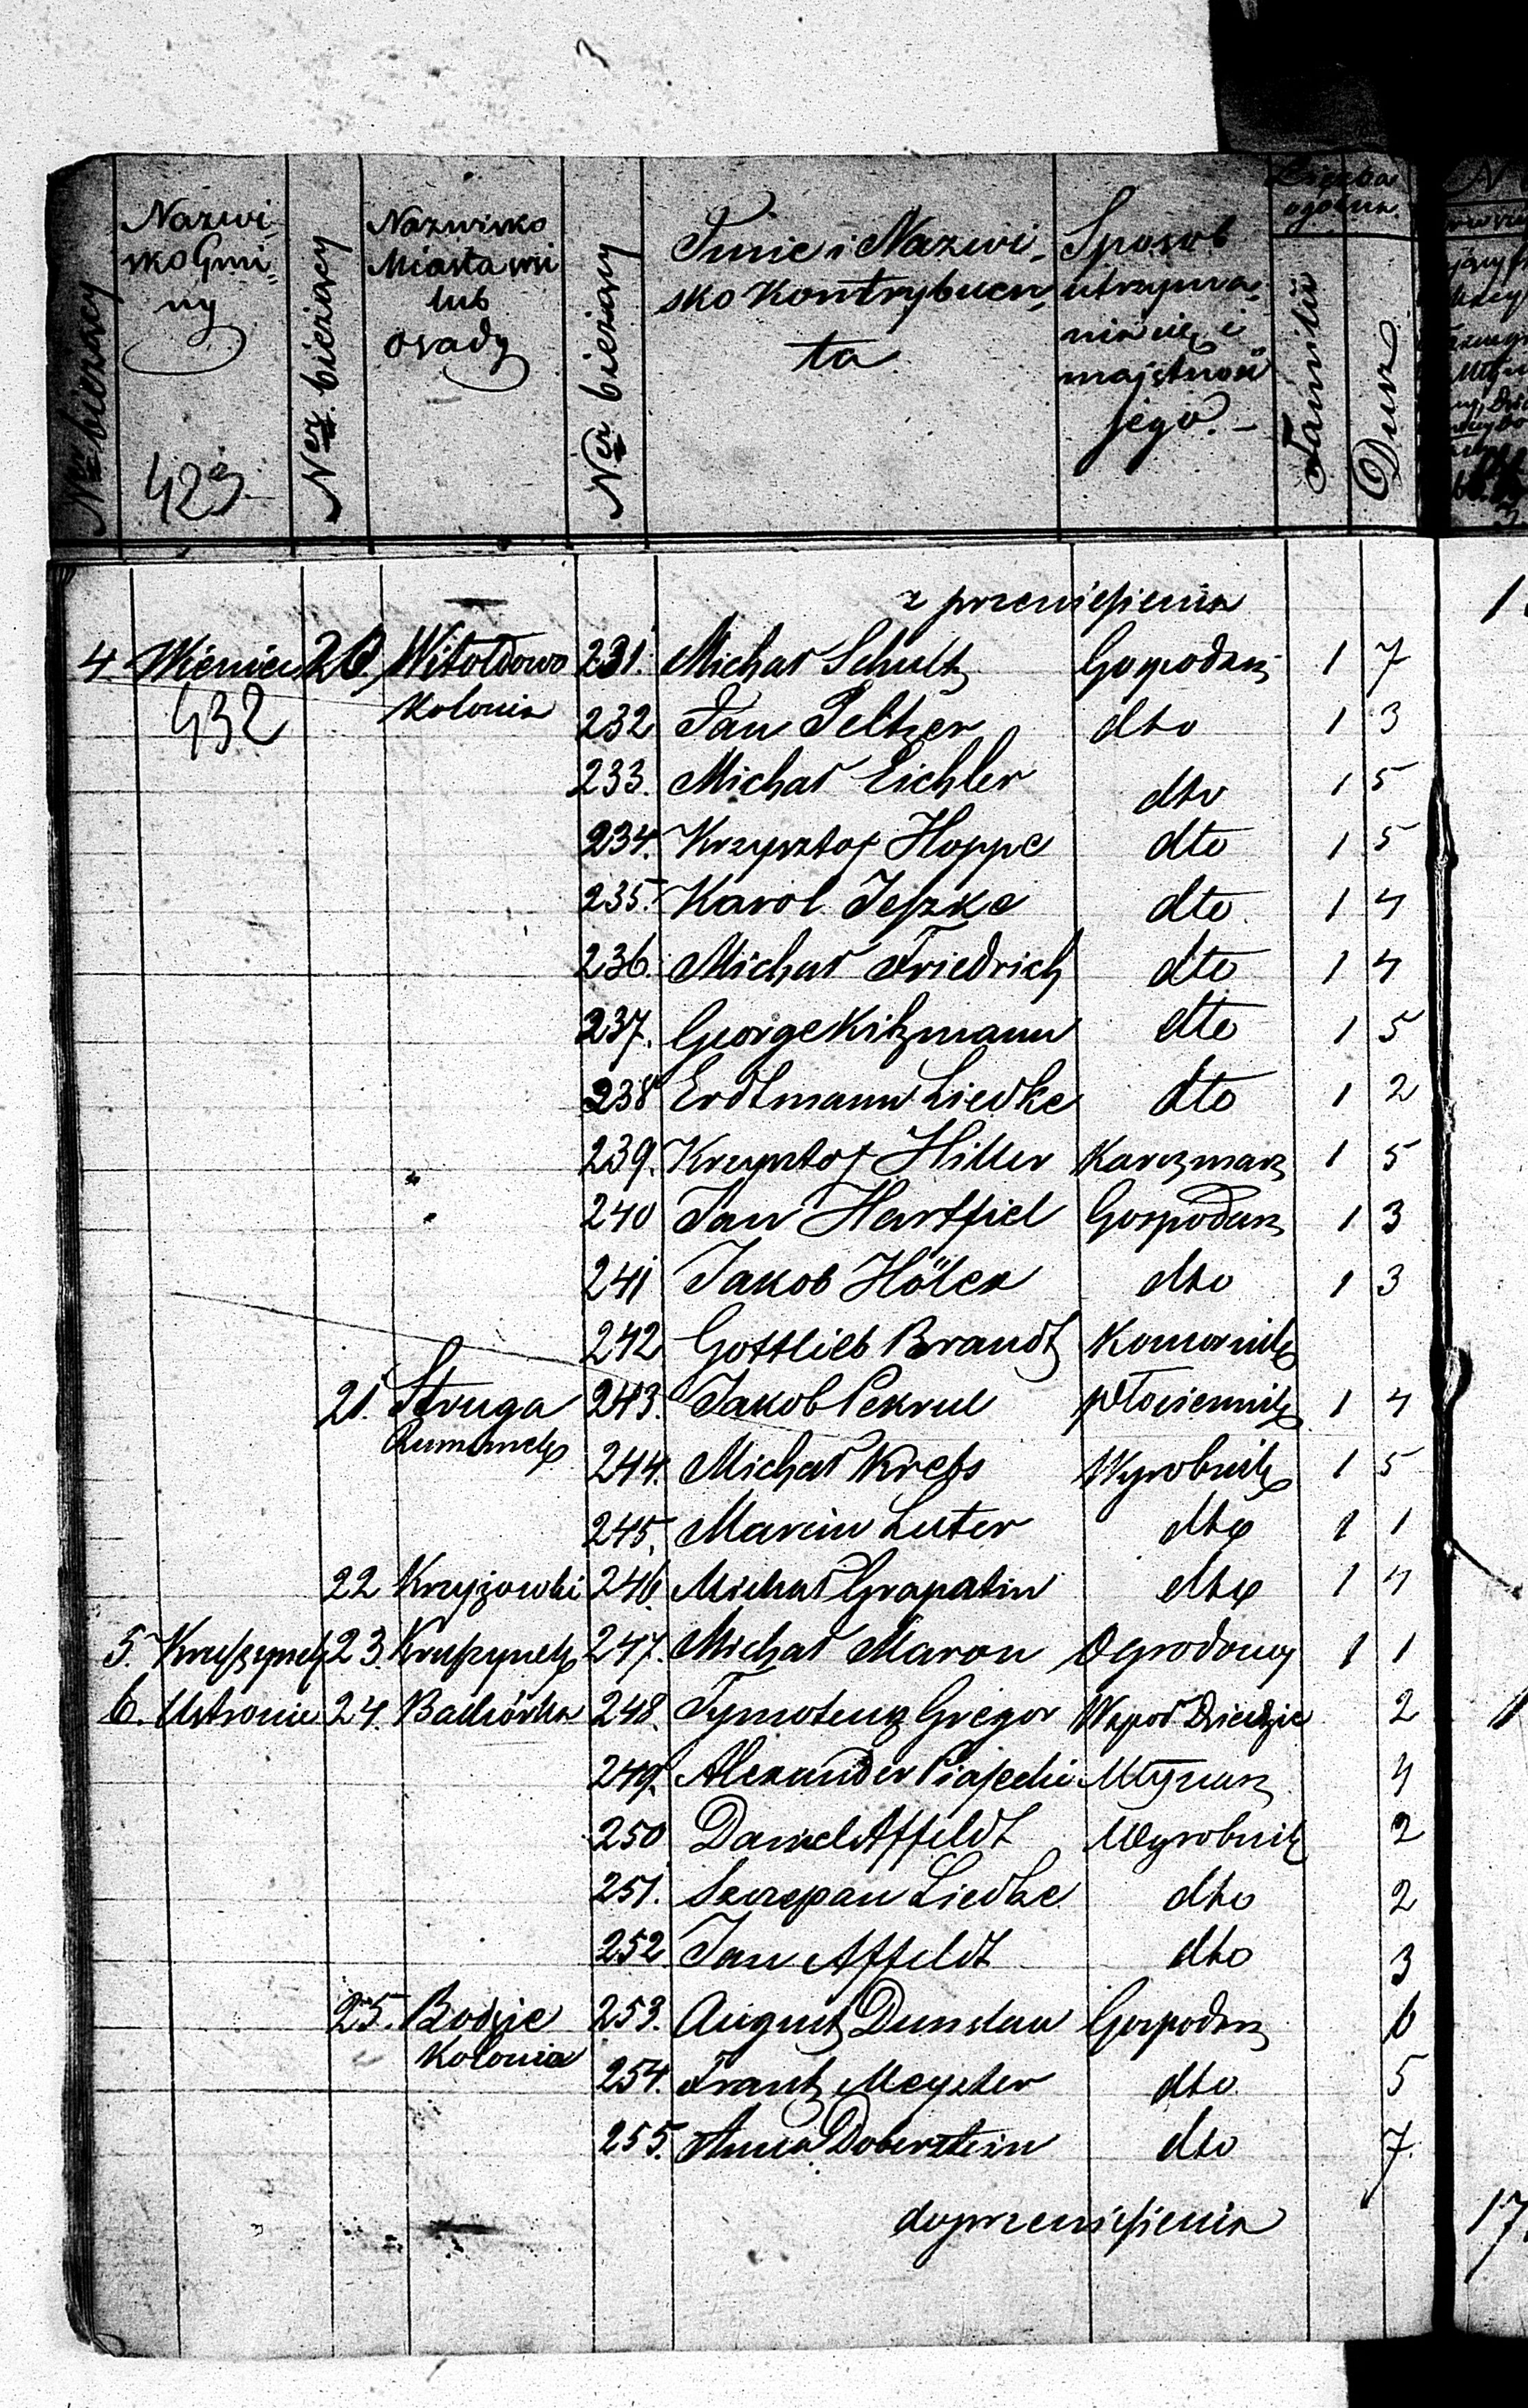 Nᵉʳ bieżący
Nazwi-
sko Gmi-
ny
423
Nᵉʳ bieżący
Nazwisko
Miasta wsi
lub
osady
Nᵉʳ bieżący
Imie i Nazwi-
sko Kontrybuen-
ta
Sposob
utrzyma-
nia się i
majętność
jego.-
Liczba
ogólna
Familii
Dusz
z przeniesienia
4. Wieniec 20. Witoldowo 231. Michał Schultz Gospodarz 1 7
432 Kolonia 232 Jan Peltzer dto 1 3
233. Michał Eichler dto 1 5
234. Krzysztof Hoppe dto 1 5
235. Karol Jeszke dto 1 4
236. Michał Friedrich dto 1 4
237. George Kitzmann dto 1 5
238 Erdtmann Liedke dto 1 2
239. Krzysztof Hiller Karczmarz 1 5
240 Jan Hartfiel Gospodarz 1 3
241 Jakob Hölek dto 1 3
242 Gottlieb Brandt Komornik
21. Struga 243. Jakob Pekrul płóciennik 1 4
Rumunek
244. Michał Krebs Wyrobnik 1 5
245. Marcin Luter dto 1 1
22 Krzyżowki 246. Michał Grapatin dto 1 4
5. Kruszynek 23. Kruszynek 247. Michał Maron Ogrodowy 1 1
6. Ustronie 24. Bachórka 248. Tymoteusz Gregor Wspoł Dziedzic 2
249. Alexander Piasecki Młynarz 4
250 Daniel Affeldt Wyrobnik 2
251. Szczepan Liedke dto 2
252 Jan Affeldt dto 3
25. Bodzie 253. August Dunslau Gospodarz 6
Kolonia
254. Frantz Meyster dto 5
255. Anna Doberstein dto 7.
do przeniesienia